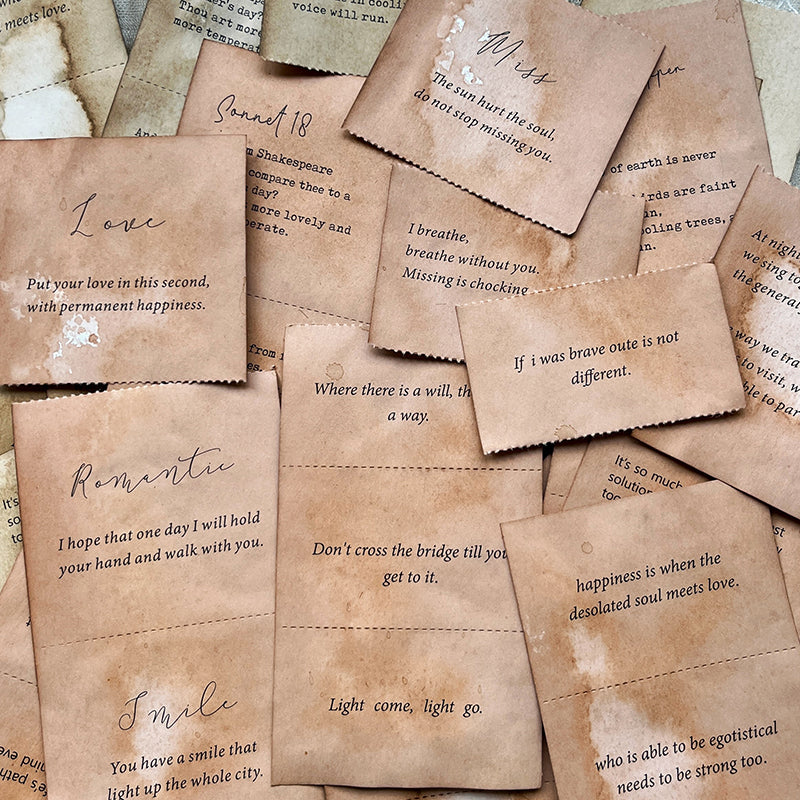 meets love.
Thou art more
more temperat
voice will run.
Miss
The sun hurt the soul,
do not stop missing you.
Sonnet 18
Shakespeare
compare thee to a
day?
more lovely and
of earth is never
birds are faint
Love
Put your love in this second,
with permanent happiness.
I breathe,
breathe without you.
Missing is chocking
At night
we sing to
the general
way we tra
to visit, w
to par
If i was brave oute is not
different.
Where there is a will, th
a way.
Don't cross the bridge till you
get to it.
Light come, light go.
Romantic
I hope that one day I will hold
your hand and walk with you.
Smile
You have a smile that
light up the whole city.
It's so much
solution
too
happiness is when the
desolated soul meets love.
who is able to be egotistical
needs to be strong too.
It's
so
to
from
path
mind eve